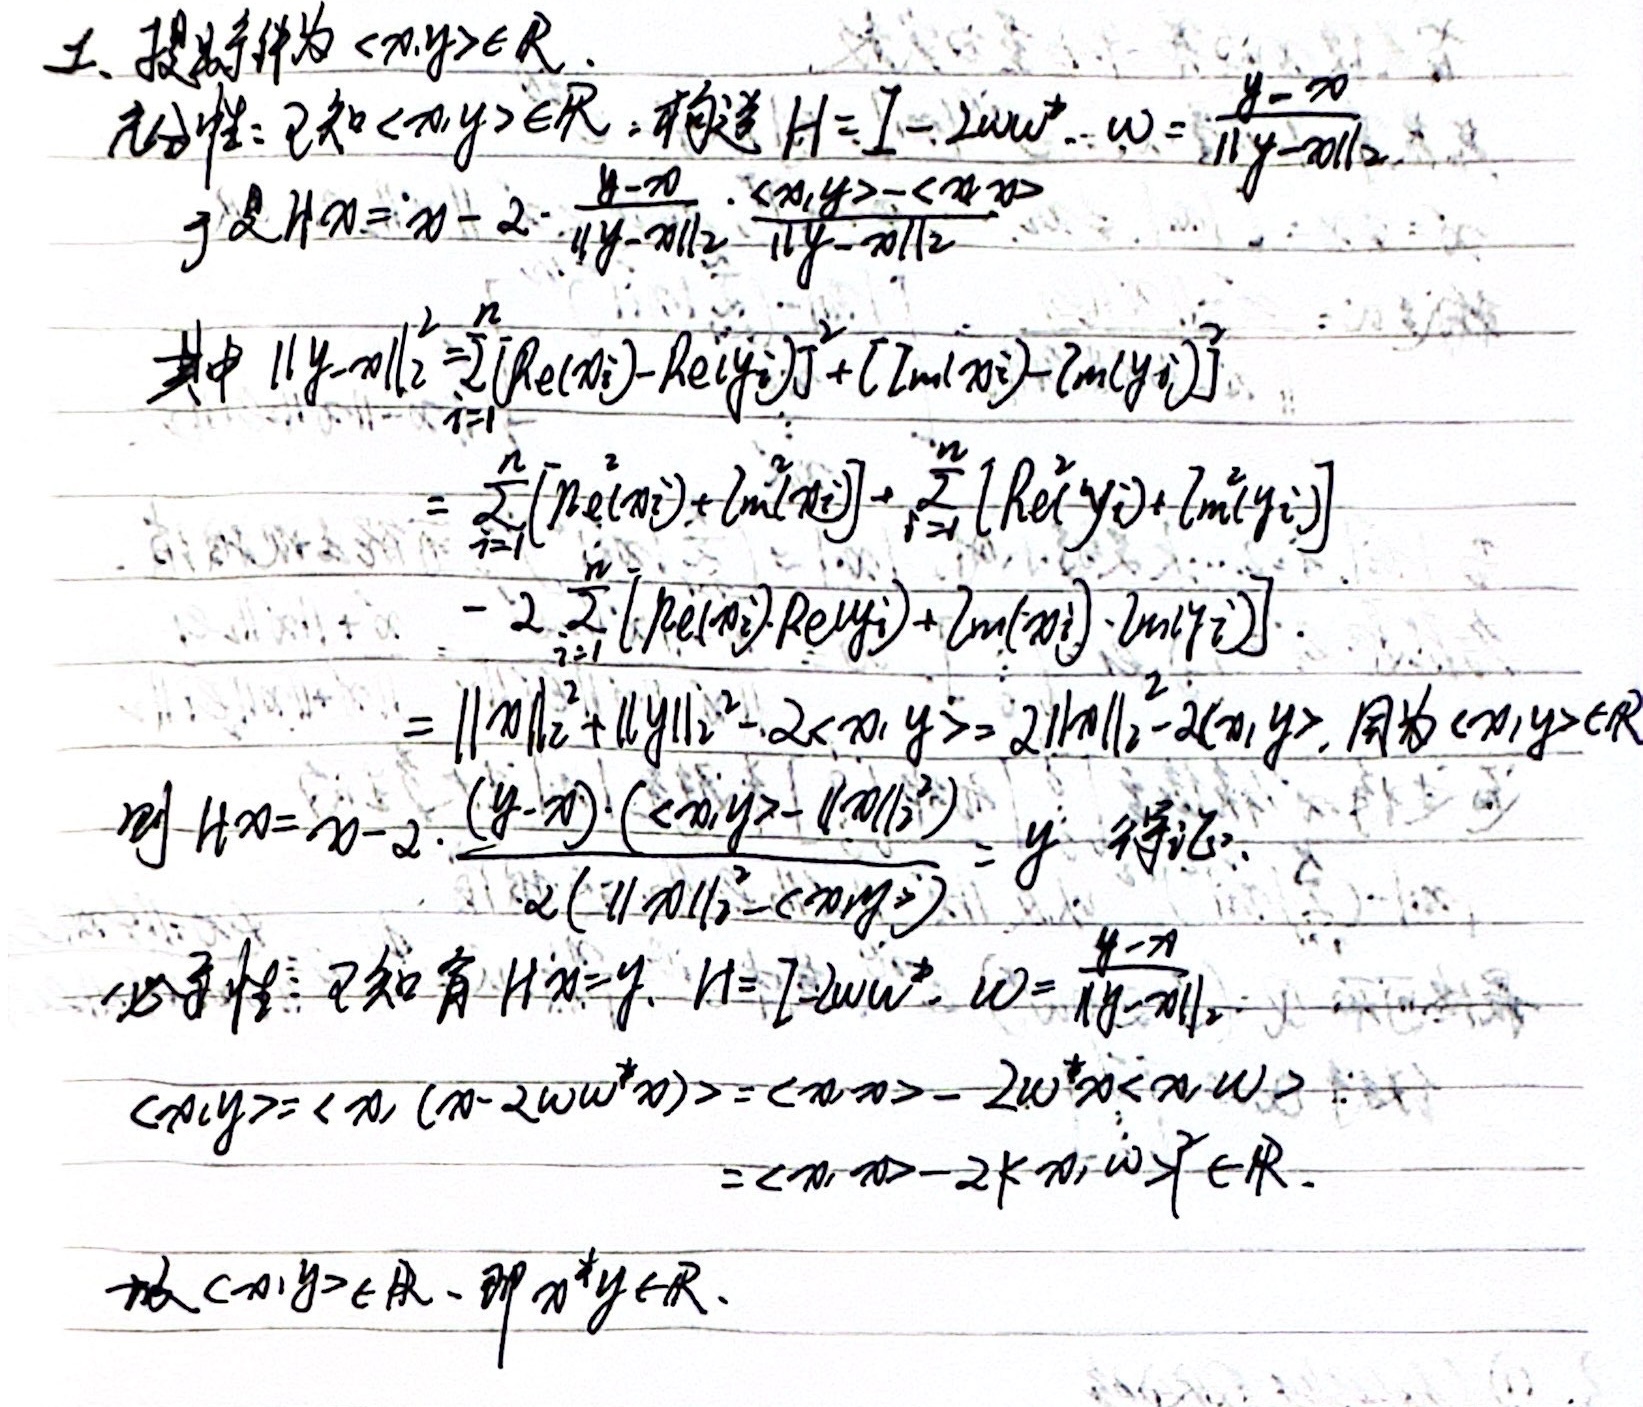 1、提条件为 <x,y>∈R.
充分性：已知<x,y>∈R，构造 H=I-2ww*. w= (y-x)/||y-x||₂.
于是Hx=x-2·(y-x)/||y-x||₂·(<x,y>-<x,x>)/||y-x||₂
其中 ||y-x||₂²=∑ᵢ₌₁ⁿ[Re(xᵢ)-Re(yᵢ)]²+[Im(xᵢ)-Im(yᵢ)]²
=∑ᵢ₌₁ⁿ[Re²(xᵢ)+Im²(xᵢ)]+∑ᵢ₌₁ⁿ[Re²(yᵢ)+Im²(yᵢ)]
-2∑ᵢ₌₁ⁿ[Re(xᵢ)·Re(yᵢ)+Im(xᵢ)·Im(yᵢ)].
=||x||₂²+||y||₂²-2<x,y>=2||x||₂²-2<x,y>, 因为<x,y>∈R
则 Hx=x-2·(y-x)·(<x,y>-||x||₂²)/2(||x||₂²-<x,y>)=y 得证.
必要性：已知有 Hx=y. H=I-2ww*. w=(y-x)/||y-x||₂.
<x,y>=<x,(x-2ww*x)>=<x,x>-2w*x<x,w>
=<x,x>-2|<x,w>|²∈R.
故<x,y>∈R、即x*y∈R.